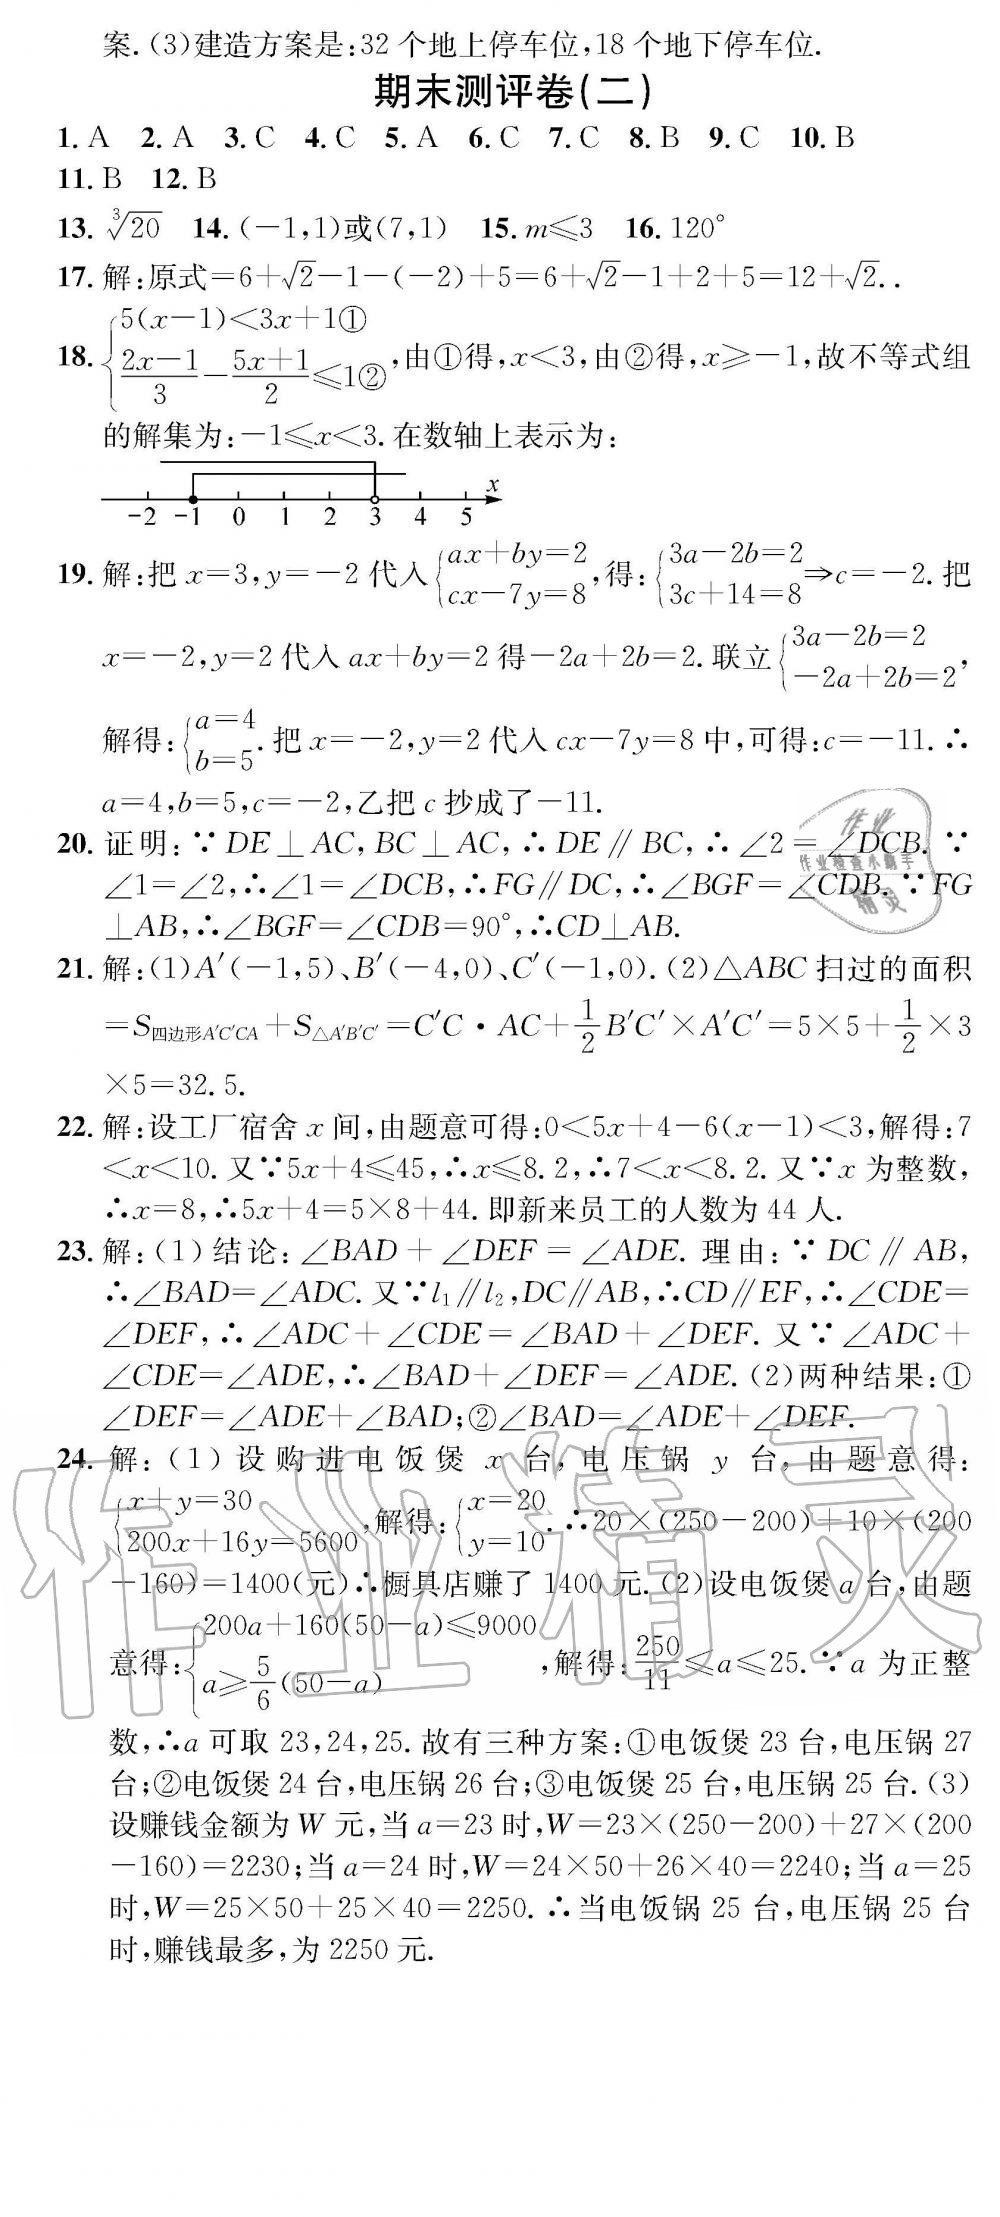 案.(3)建造方案是:32个地上停车位,18个地下停车位.
期末测评卷(二)
1. A  2. A  3. C  4. C  5. A  6. C  7. C  8. B  9. C  10. B
11. B  12. B
13. ∛20  14. (－1,1)或(7,1)  15. m⩽3  16. 120°
17. 解:原式＝6＋√2－1－(－2)＋5＝6＋√2－1＋2＋5＝12＋√2. .
18. {5(x－1)＜3x＋1① (2x－1)/3－(5x＋1)/2⩽1②,由①得,x＜3,由②得,x⩾－1,故不等式组
的解集为:－1⩽x＜3.在数轴上表示为:
x
-2 -1 0 1 2 3 4 5
19. 解:把x＝3,y＝－2代入{ax＋by＝2 cx－7y＝8,得:{3a－2b＝2 3c＋14＝8⇒c＝－2.把
x＝－2,y＝2代入ax＋by＝2得－2a＋2b＝2.联立{3a－2b＝2 －2a＋2b＝2,
解得:{a＝4 b＝5.把x＝－2,y＝2代入cx－7y＝8中,可得:c＝－11.∴
a＝4,b＝5,c＝－2,乙把c抄成了－11.
20. 证明:∵DE⊥AC,BC⊥AC,∴DE∥BC,∴∠2＝∠DCB.∵
∠1＝∠2,∴∠1＝∠DCB,∴FG∥DC,∴∠BGF＝∠CDB.∵FG
⊥AB,∴∠BGF＝∠CDB＝90°,∴CD⊥AB.
21. 解:(1)A′(－1,5)、B′(－4,0)、C′(－1,0).(2)△ABC扫过的面积
＝S四边形A′C′CA＋S△A′B′C′＝C′C·AC＋1/2B′C′×A′C′＝5×5＋1/2×3
×5＝32.5.
22. 解:设工厂宿舍x间,由题意可得:0＜5x＋4－6(x－1)＜3,解得:7
＜x＜10.又∵5x＋4⩽45,∴x⩽8.2,∴7＜x＜8.2.又∵x为整数,
∴x＝8,∴5x＋4＝5×8＋44.即新来员工的人数为44人.
23. 解:(1)结论:∠BAD＋∠DEF＝∠ADE.理由:∵DC∥AB,
∴∠BAD＝∠ADC.又∵l₁∥l₂,DC∥AB,∴CD∥EF,∴∠CDE＝
∠DEF,∴∠ADC＋∠CDE＝∠BAD＋∠DEF.又∵∠ADC＋
∠CDE＝∠ADE,∴∠BAD＋∠DEF＝∠ADE.(2)两种结果:①
∠DEF＝∠ADE＋∠BAD;②∠BAD＝∠ADE＋∠DEF.
24. 解:(1)设购进电饭煲x台,电压锅y台,由题意得:
{x＋y＝30 200x＋16y＝5600,解得:{x＝20 y＝10.∴20×(250－200)＋10×(200
－160)＝1400(元)∴橱具店赚了1400元.(2)设电饭煲a台,由题
意得:{200a＋160(50－a)⩽9000 a⩾5/6(50－a),解得:250/11⩽a⩽25.∵a为正整
数,∴a可取23,24,25.故有三种方案:①电饭煲23台,电压锅27
台;②电饭煲24台,电压锅26台;③电饭煲25台,电压锅25台.(3)
设赚钱金额为W元,当a＝23时,W＝23×(250－200)＋27×(200
－160)＝2230;当a＝24时,W＝24×50＋26×40＝2240;当a＝25
时,W＝25×50＋25×40＝2250.∴当电饭锅25台,电压锅25台
时,赚钱最多,为2250元.
作业
作业检查小助手
精灵
作业精灵